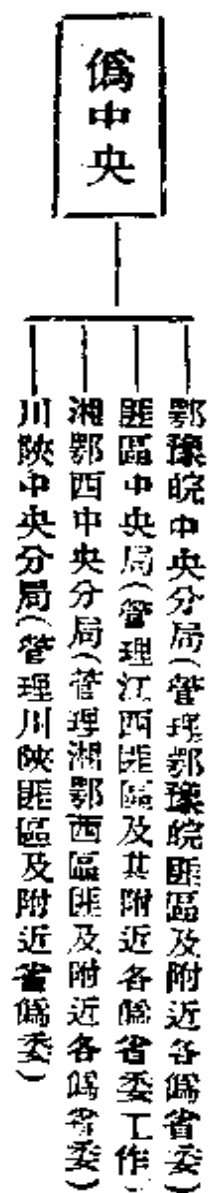 偽中央
鄂豫皖中央分局(管理鄂豫皖匪區及附近各偽省委)
匪區中央局(管理江西匪區及其附近各偽省委工作)
湘鄂西中央分局(管理湘鄂西區匪及附近各偽省委)
川陝中央分局(管理川陝匪區及附近省偽委)